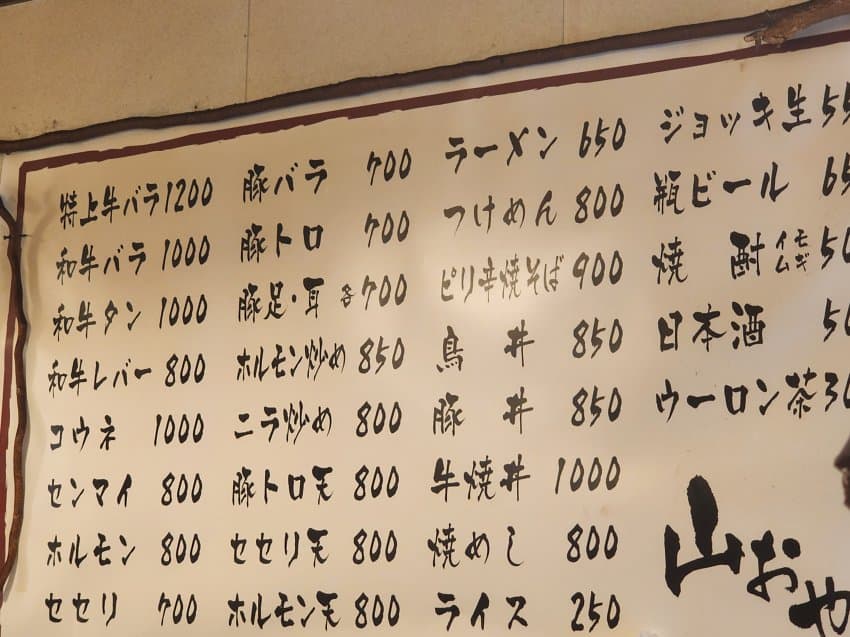 特上牛バラ 1200
和牛バラ 1000
和牛タン 1000
和牛レバー 800
コウネ 1000
センマイ 800
ホルモン 800
セセリ 700
豚バラ 700
豚トロ 700
豚足・耳 各700
ホルモン炒め 850
ニラ炒め 800
豚トロ天 800
セセリ天 800
ホルモン天 800
ラーメン 650
つけめん 800
ピリ辛焼そば 900
鳥丼 850
豚丼 850
牛焼丼 1000
焼めし 800
ライス 250
ジョッキ生 55
瓶ビール 65
焼酎 イモ ムギ 50
日本酒 50
ウーロン茶 30
山おや